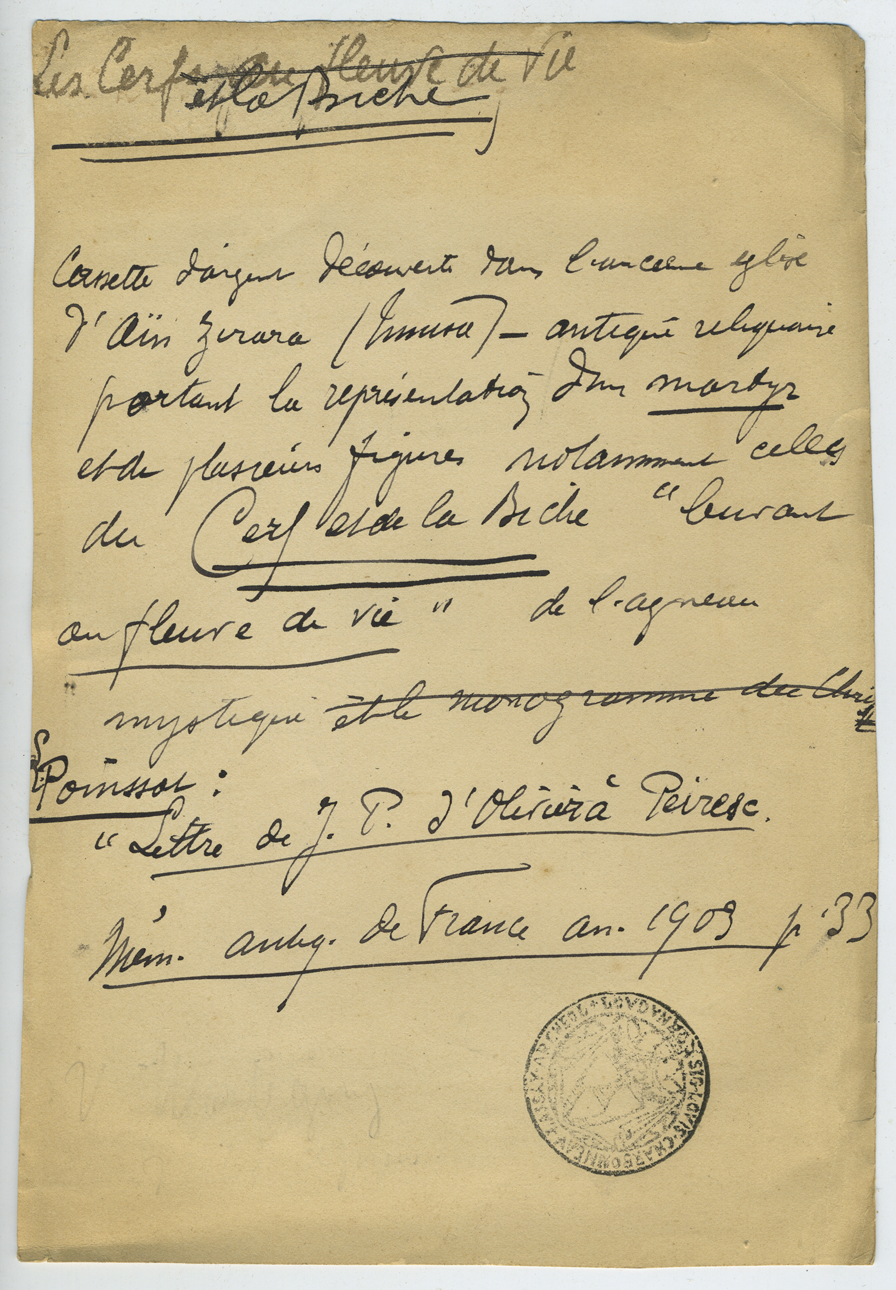 Les Cerfs au fleuve de Vie
et la Biche
Cassette d'argent découverte dans l'ancienne église
d'Aïn Zirara (Numidie) — antique reliquaire
portant la représentation d'un martyr
et de plusieurs figures notamment celles
du Cerf et de la Biche "buvant
au fleuve de vie" de l'agneau
mystique et le monogramme du Christ
Poinssot :
"Lettre de J. P. d'Olivier à Peiresc.
Mém. antiq. de France an. 1903 p. 33
SIG·LOVIS·CHARBONNEAV·LASSAY·ARCHEOL